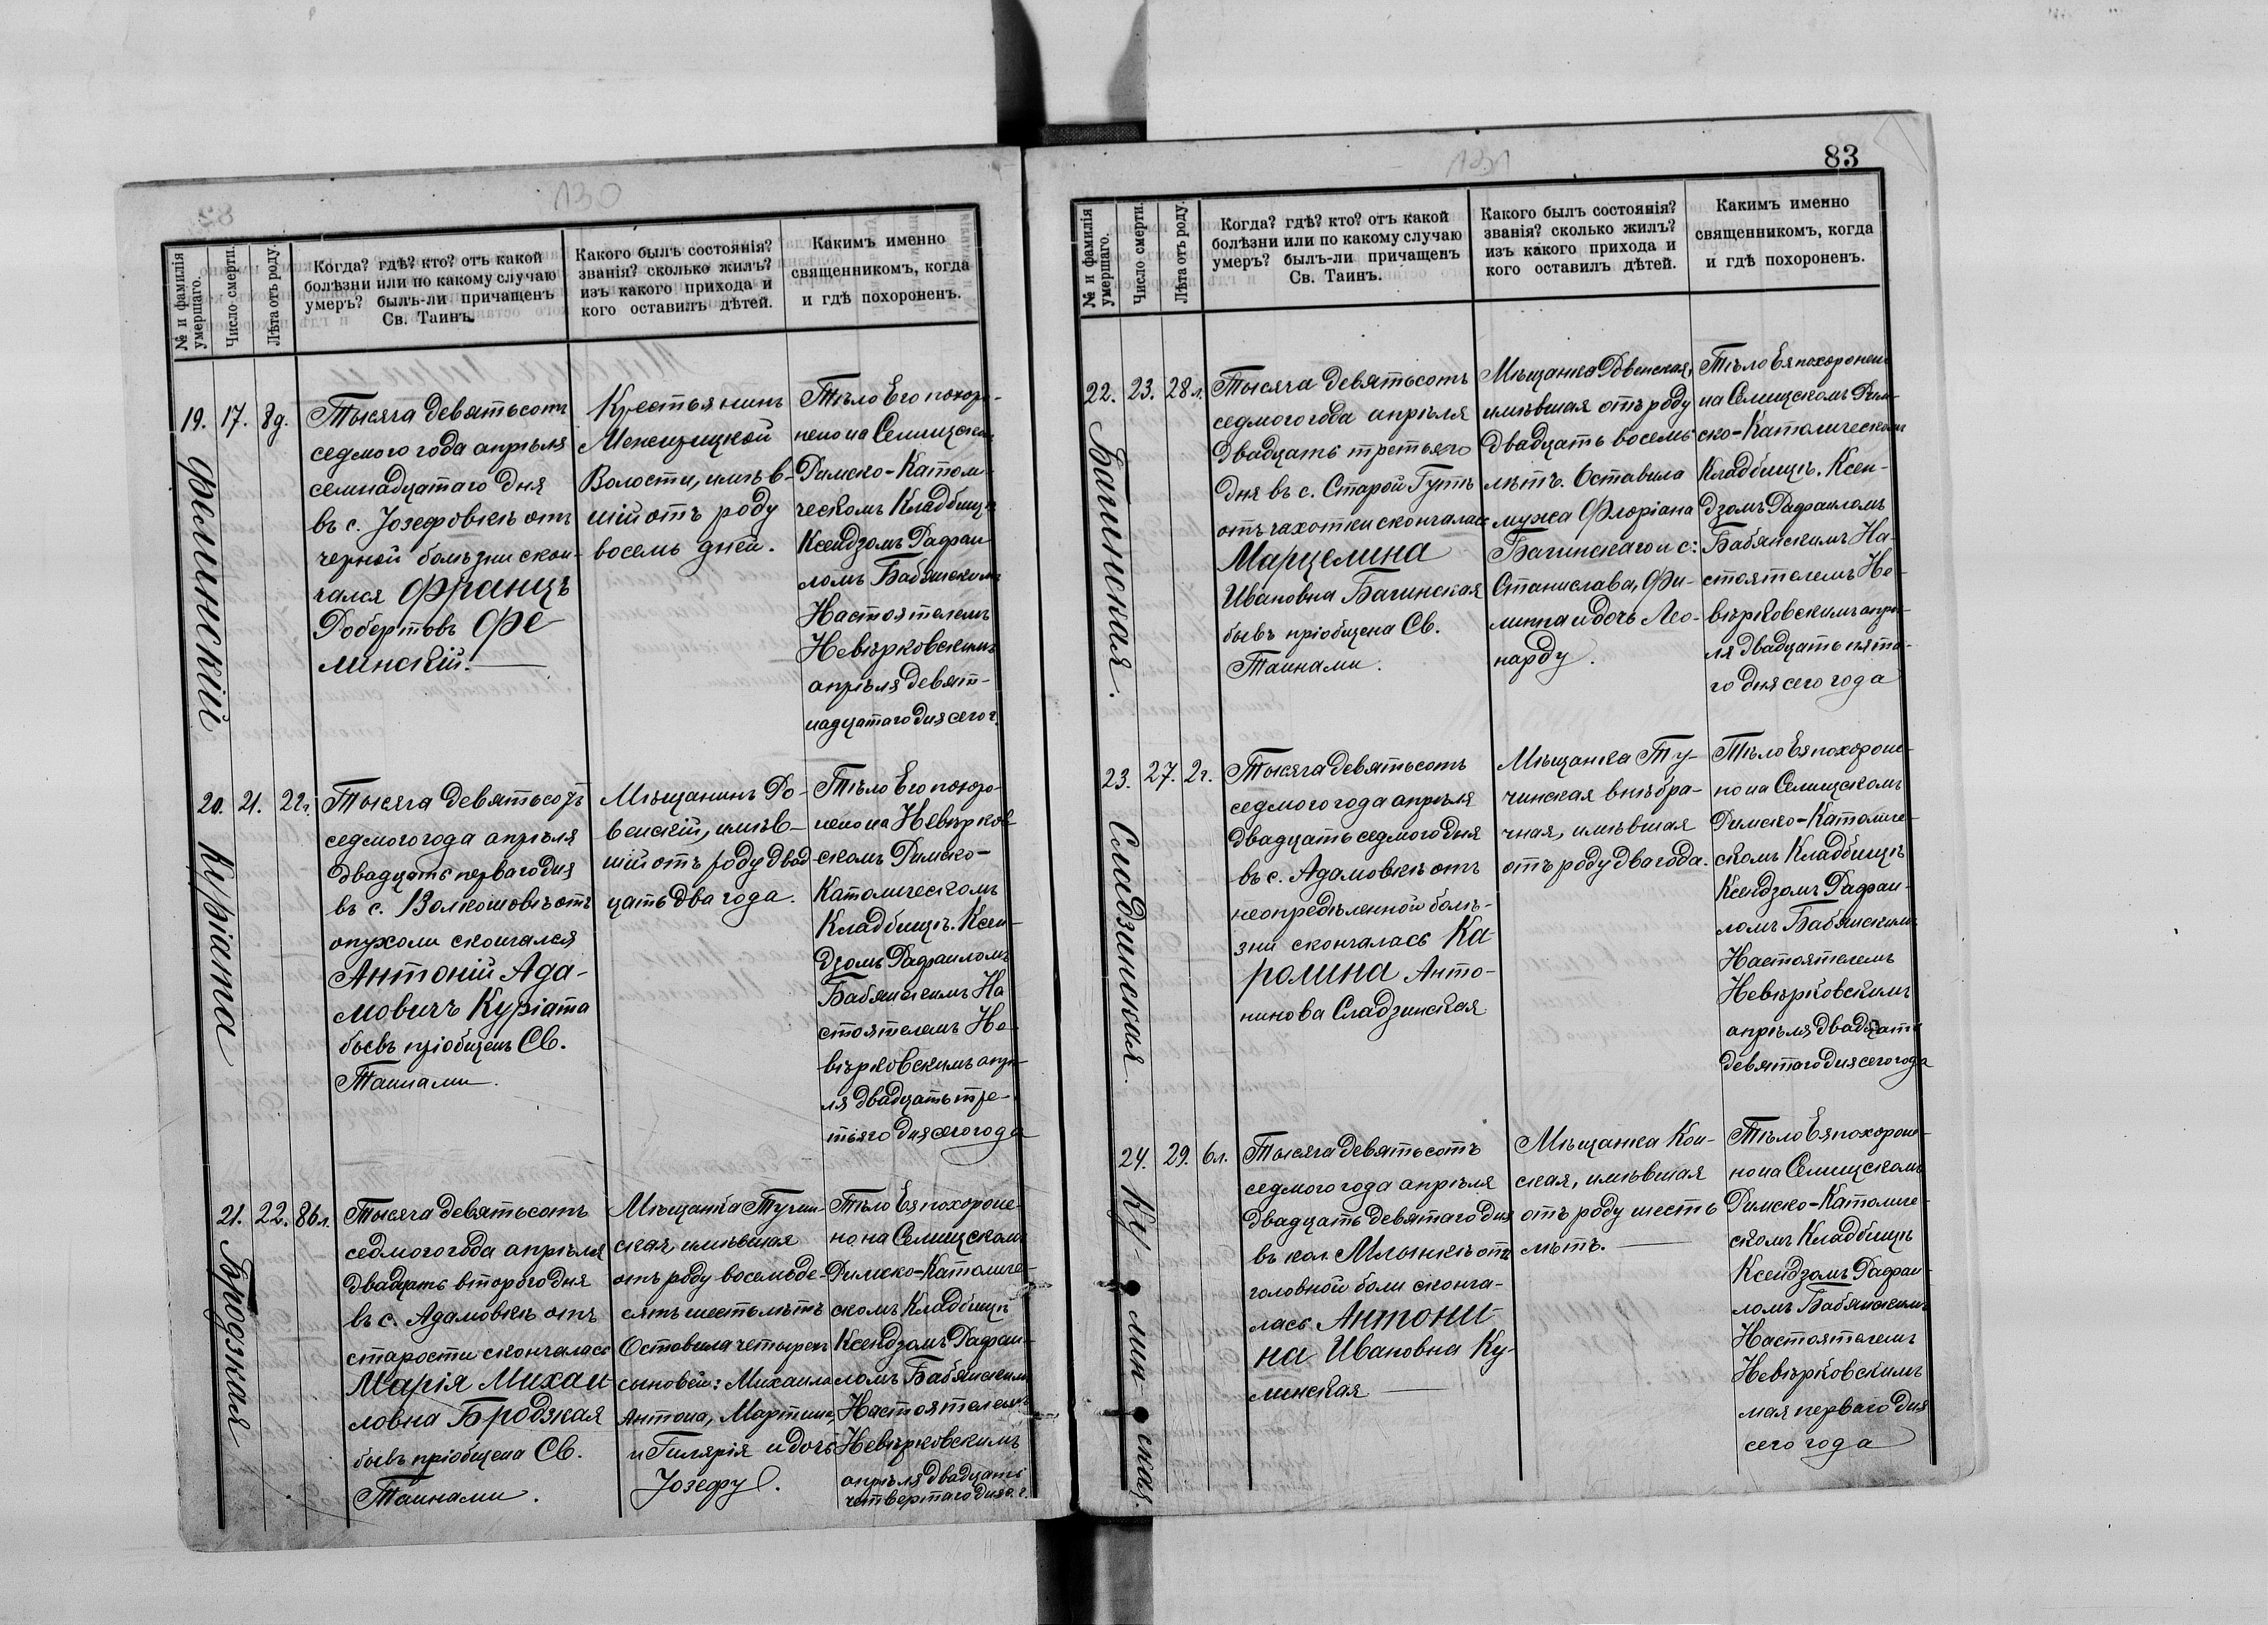 130
№ и фамилія
умершаго.
Число смерти.
Лѣта отъ роду.
Когда? гдѣ? кто? отъ какой
болѣзни или по какому случаю
умеръ? былъ-ли причащенъ
Св. Таинъ.
Какого былъ состоянія?
званія? сколько жилъ?
изъ какого прихода и
кого оставилъ дѣтей.
Какимъ именно
священникомъ, когда
и гдѣ похороненъ.
19. 17. 8 д.
Фелинскій
Тысяча девятьсотъ
седмого года апрѣля
семнадцатаго дня
въ с. Јозефовкѣ отъ
черной болѣзни скон-
чался Францъ
Робертовъ Фе
линскій.
Крестьянинъ
Межирицкой
Волости, имѣв-
шій отъ роду
восемь дней.
Тѣло Его похоро-
нено на Селищском
Римско-Католи-
ческомъ Кладбищѣ
Ксендзомъ Рафаи
ломъ Бабянскимъ
Настоятелемъ
Невѣрковскимъ
апрѣля девят-
надцатаго дня сего г.
20. 21. 22 г.
Куріата
Тысяча девятьсотъ
седмого года апрѣля
двадцать перваго дня
въ с. Волкошовѣ отъ
опухоли скончался
Антоній Ада-
мовичъ Куріата
бывъ пріобщенъ Св.
Таинами.
Мѣщанинъ Ро-
венскій, имѣв-
шій отъ роду двад-
цать два года.
Тѣло Его похоро-
нено на Невѣрков
скомъ Римско-
Католическомъ
Кладбищѣ. Ксен-
дзомъ Рафаиломъ
Бабянскимъ На
стоятелемъ Не-
вѣрковскимъ апрѣ-
ля двадцать тре-
тьяго дня сего года
21. 22. 86 л.
Бродзкая
Тысяча девятьсотъ
седмого года апрѣля
двадцать второго дня
въ с. Адамовкѣ отъ
старости скончалась
Марія Михаи
ловна Бродзкая
бывъ пріобщена Св.
Таинами.
Мѣщанка Тучин-
ская, имѣвшая
отъ роду восемьде-
сятъ шесть лѣтъ
Оставила четырехъ
сыновей: Михаила
Антона, Мартина,
и Гилярія и дочь
Јозефу.
Тѣло Ея похороне-
но на Селищскомъ
Римско-Католиче-
скомъ Кладбищѣ
Ксендзомъ Рафаи-
ломъ Бабянскимъ
Настоятелемъ
Невѣрковскимъ
апрѣля двадцать
четвертаго дня с. г.
131
83
№ и фамилія
умершаго.
Число смерти.
Лѣта отъ роду.
Когда? гдѣ? кто? отъ какой
болѣзни или по какому случаю
умеръ? былъ-ли причащенъ
Св. Таинъ.
Какого былъ состоянія?
званія? сколько жилъ?
изъ какого прихода и
кого оставилъ дѣтей.
Какимъ именно
священникомъ, когда
и гдѣ похороненъ.
22. 23. 28 л.
Багинская.
Тысяча девятьсотъ
седмого года апрѣля
двадцать третьяго
дня въ с. Старой Гутѣ
отъ чахотки скончалась
Марцелина
Ивановна Багинская
бывъ пріобщена Св.
Таинами.
Мѣщанка Ровенская,
имѣвшая отъ роду
двадцать восемь
лѣтъ. Оставила
мужа Флоріана
Багинскаго и с:
Станислава, Фи-
липпа и дочь Лео-
нарду.
Тѣло Ея похоронено
на Селищскомъ Рим-
ско-Католическомъ
Кладбищѣ. Ксен-
дзомъ Рафаиломъ
Бабянскимъ На-
стоятелемъ Не-
вѣрковскимъ апрѣ-
ля двадцать пята-
го дня сего года
23. 27. 2 г.
Сладзинская
Тысяча девятьсотъ
седмого года апрѣля
двадцать седмого дня
въ с. Адамовкѣ отъ
неопредѣленной болѣ-
зни скончалась Ка
ролина Анто-
нинова Сладзинская
Мѣщанка Ту-
чинская внѣбра-
чная, имѣвшая
отъ роду два года.
Тѣло Ея похороне-
но на Селищскомъ
Римско-Католиче-
скомъ Кладбищѣ
Ксендзомъ Рафаи-
ломъ Бабянскимъ
Настоятелемъ
Невѣрковскимъ
апрѣля двадцать
девятаго дня сего года
24. 29. 6 л.
Ку-лин-ская.
Тысяча девятьсотъ
седмого года апрѣля
двадцать девятаго дня
въ кол. Млынкѣ отъ
головной боли сконча-
лась Антони-
на Ивановна Ку-
линская
Мѣщанка
ская, имѣвшая
отъ роду шесть
лѣтъ.
Тѣло Ея похороне-
но на Селищскомъ
Римско-Католиче-
скомъ Кладбищѣ
Ксендзомъ Рафаи-
ломъ Бабянскимъ
Настоятелемъ
Невѣрковскимъ
мая перваго дня
сего года